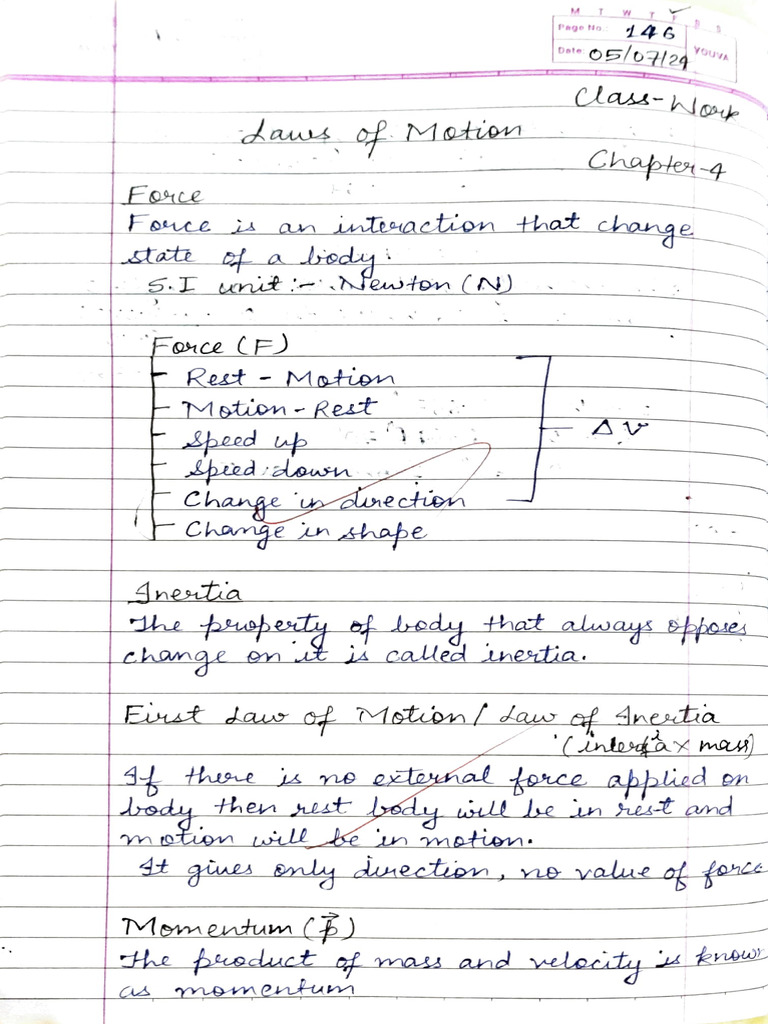 M T W T F S S
Page No.: 146
Date: 05/07/24 YOUVA
Class-Work
Laws of Motion
Chapter-4
Force
Force is an interaction that change
state of a body.
S.I unit :- Newton (N)
Force (F)
Rest - Motion
Motion - Rest
Speed up
Δv
Speed down
Change in direction
Change in shape
Inertia
The property of body that always opposes
change on it is called inertia.
First Law of Motion / Law of Inertia
× mass)
If there is no external force applied on
body then rest body will be in rest and
motion will be in motion.
It gives only direction, no value of force
Momentum (P⃗)
The product of mass and velocity is known
as momentum